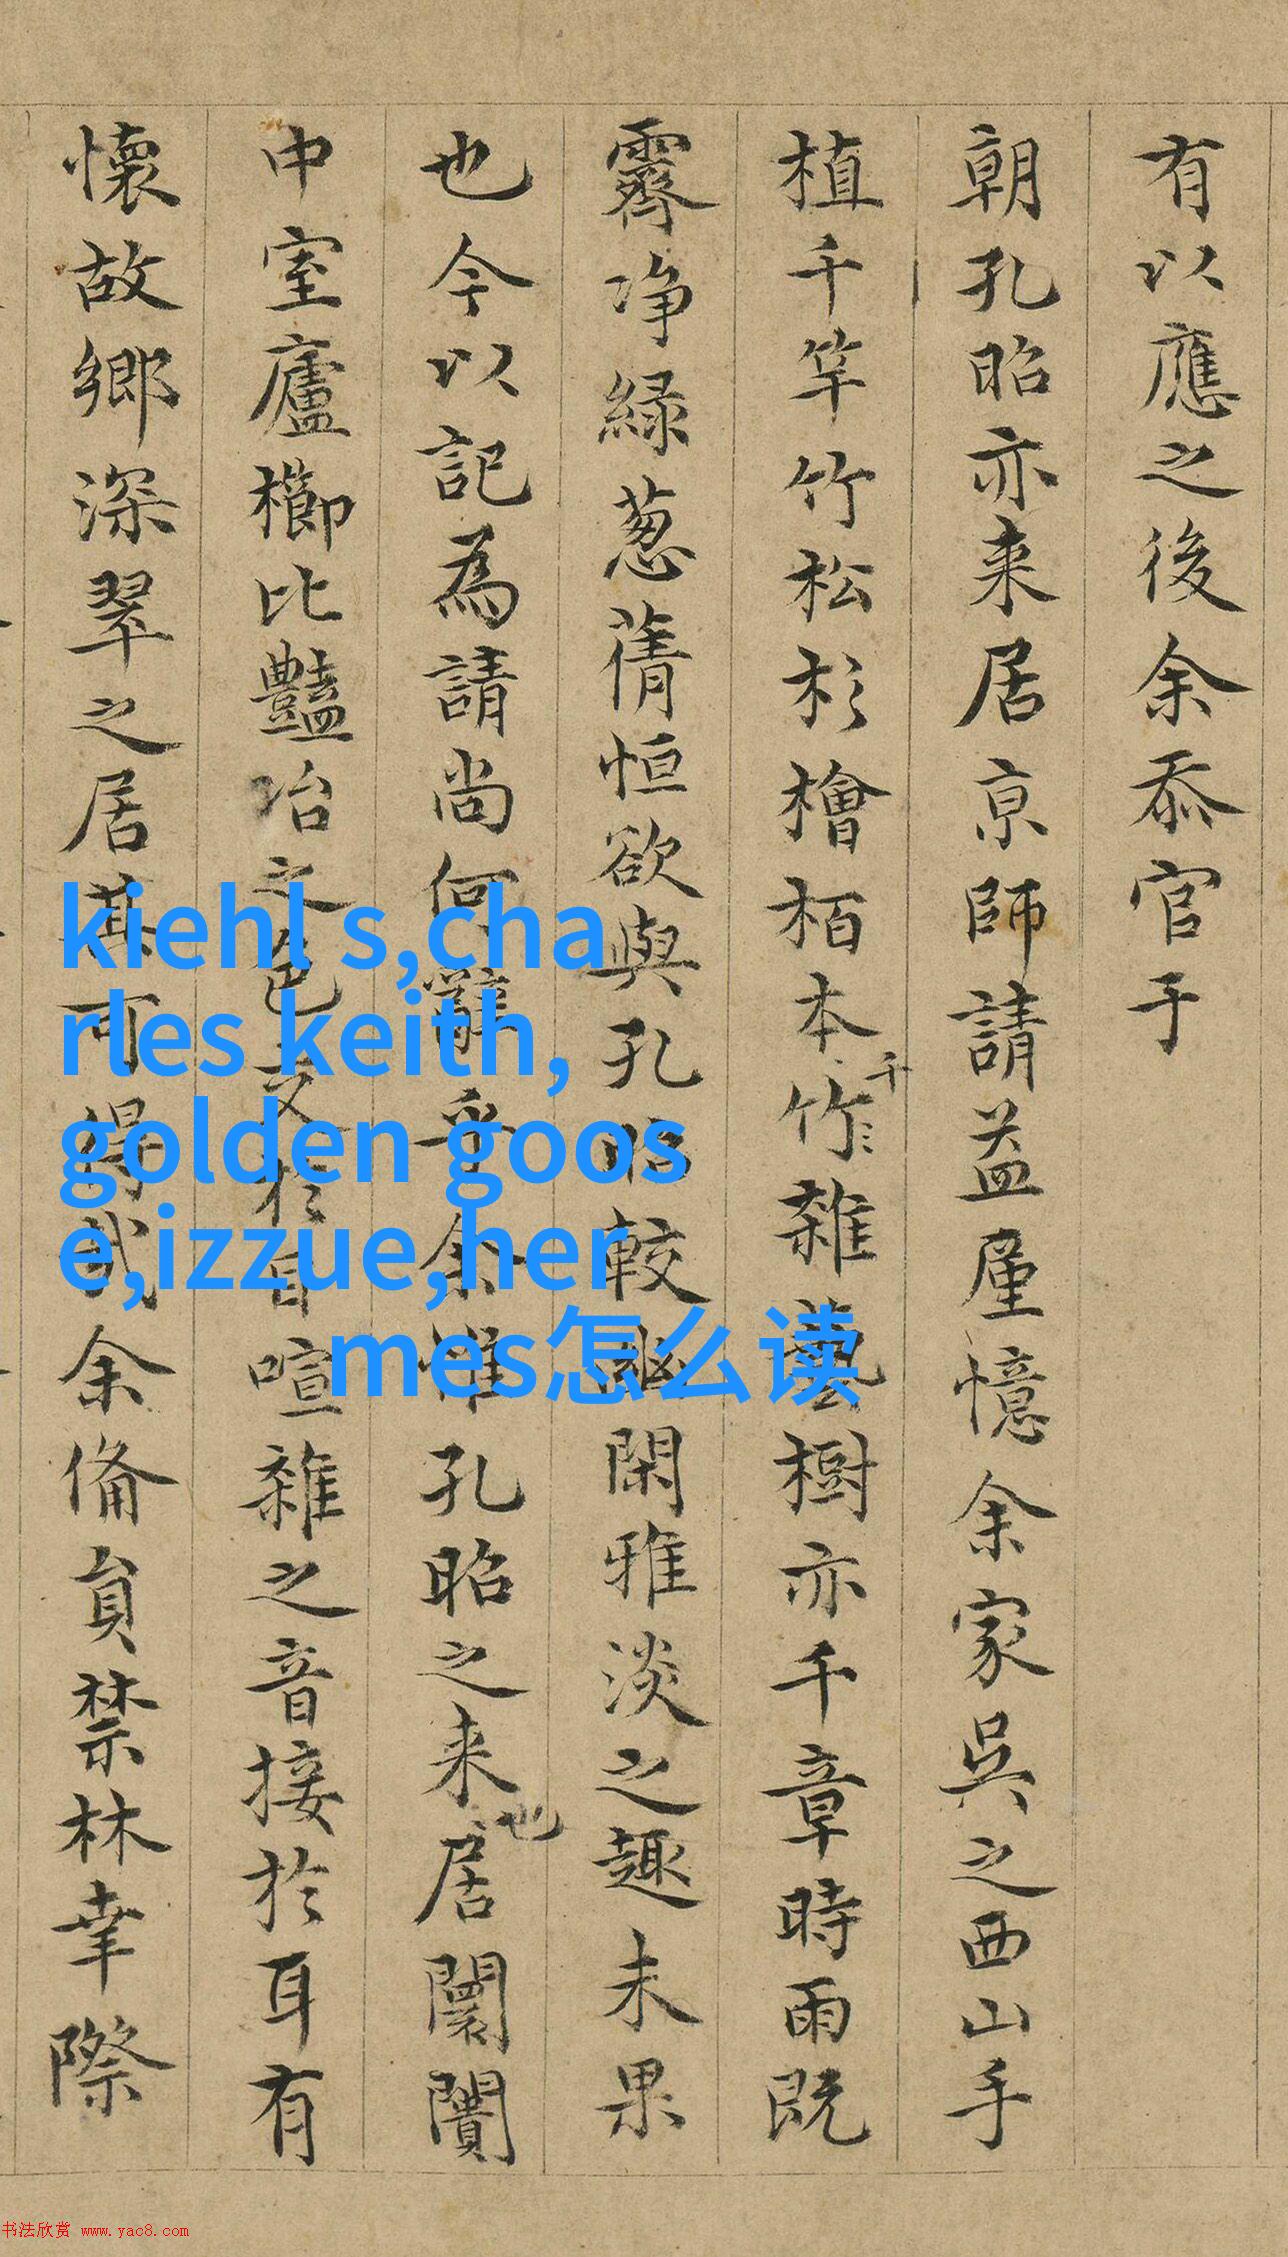 有以應之後余忝官于
朝孔昭亦来居京師請益厪憶余家吳之西山手
植千竿竹松杉檜栢本竹千〻雜藝樹亦千章時雨既
霽净綠葱蒨恒欲與孔昭較幽閑雅淡之趣未果
也今以記為請尚何辭乎余惟孔昭之来居也闤闠
中室廬櫛比豔冶之色交於目喧雜之音接於耳有
懷故鄉深翠之居其可得哉余備員禁林幸際
kiehl s,cha
rles keith,
golden goos
e,izzue,her
mes怎么读
书法欣赏 www.yac8.com